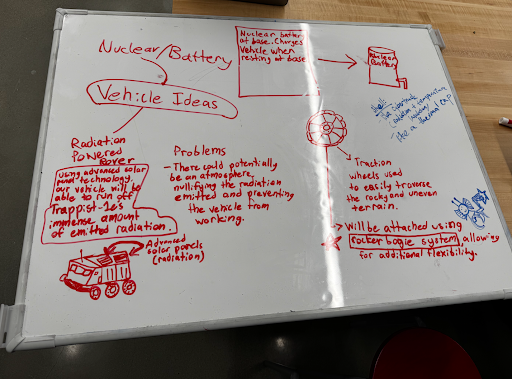 Nuclear/Battery
Nuclear battery
at base. Charges
Vehicle when
resting at base
Nuclear
Battery
Vehicle Ideas
Radiation
Powered
Rover
Using advanced solar
panel technology,
our vehicle will be
able to run off
Trappist-1e's
immense amount
of emitted radiation.
Advanced
solar panels
(radiation)
Problems
- There could potentially
be an atmosphere,
nullifying the radiation
emitted and preventing
the vehicle from
working.
Traction
wheels used
to easily traverse
the rocky and uneven
terrain.
Will be attached using
rocker bogie system, allowing
for additional flexibility.
like a thermal cap